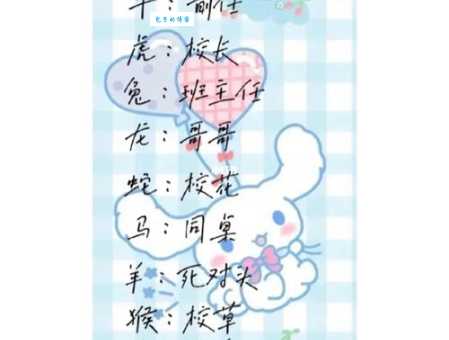 牛：前任
虎：校长
兔：班主任
龙：哥哥
蛇：校花
马：同桌
羊：死对头
猴：校草